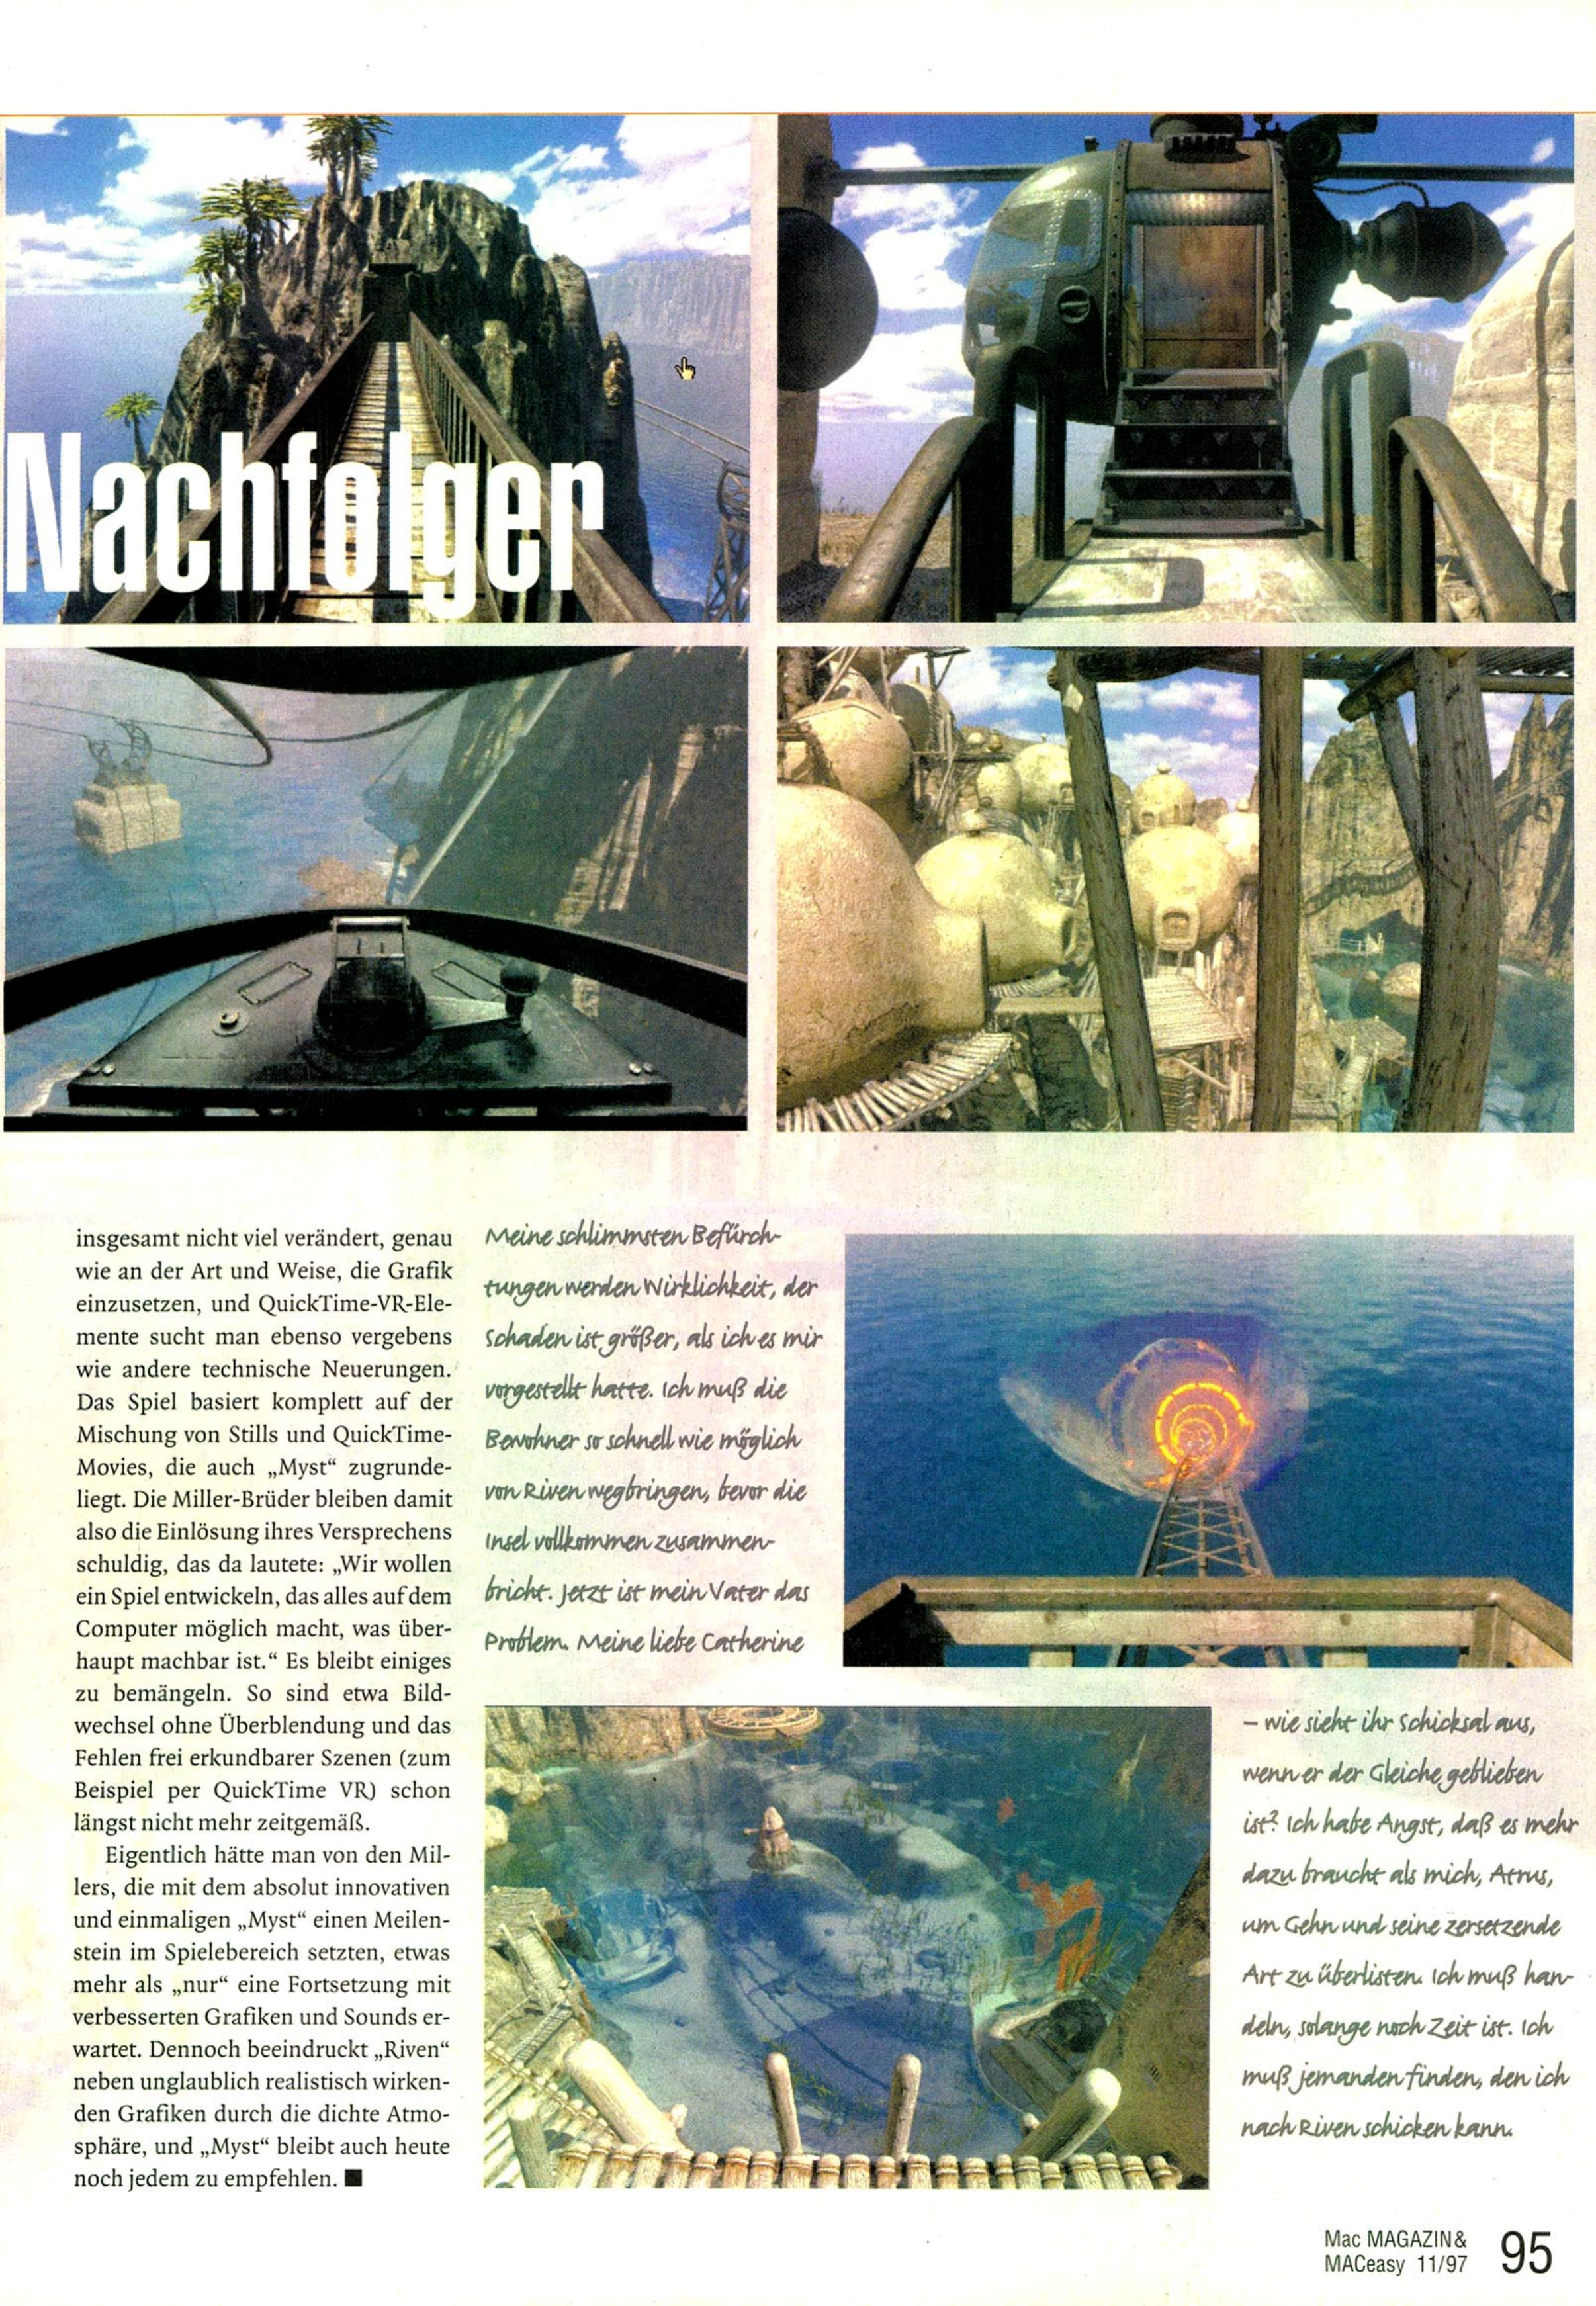 Nachfolger
insgesamt nicht viel verändert, genau
wie an der Art und Weise, die Grafik
einzusetzen, und QuickTime-VR-Ele-
mente sucht man ebenso vergebens
wie andere technische Neuerungen.
Das Spiel basiert komplett auf der
Mischung von Stills und QuickTime-
Movies, die auch „Myst“ zugrunde-
liegt. Die Miller-Brüder bleiben damit
also die Einlösung ihres Versprechens
schuldig, das da lautete: „Wir wollen
ein Spiel entwickeln, das alles auf dem
Computer möglich macht, was über-
haupt machbar ist.“ Es bleibt einiges
zu bemängeln. So sind etwa Bild-
wechsel ohne Überblendung und das
Fehlen frei erkundbarer Szenen (zum
Beispiel per QuickTime VR) schon
längst nicht mehr zeitgemäß.
Eigentlich hätte man von den Mil-
lers, die mit dem absolut innovativen
und einmaligen „Myst“ einen Meilen-
stein im Spielebereich setzten, etwas
mehr als „nur“ eine Fortsetzung mit
verbesserten Grafiken und Sounds er-
wartet. Dennoch beeindruckt „Riven“
neben unglaublich realistisch wirken-
den Grafiken durch die dichte Atmo-
sphäre, und „Myst“ bleibt auch heute
noch jedem zu empfehlen. ■
Meine schlimmsten Befürch-
tungen werden Wirklichkeit, der
Schaden ist größer, als ich es mir
vorgestellt hatte. Ich muß die
Bewohner so schnell wie möglich
von Riven wegbringen, bevor die
Insel vollkommen zusammen-
bricht. Jetzt ist mein Vater das
Problem. Meine liebe Catherine
– wie sieht ihr Schicksal aus,
wenn er der Gleiche geblieben
ist? Ich habe Angst, daß es mehr
dazu braucht als mich, Atrus,
um Gehn und seine zersetzende
Art zu überlisten. Ich muß han-
deln, solange noch Zeit ist. Ich
muß jemanden finden, den ich
nach Riven schicken kann.
Mac MAGAZIN&
MACeasy 11/97 95